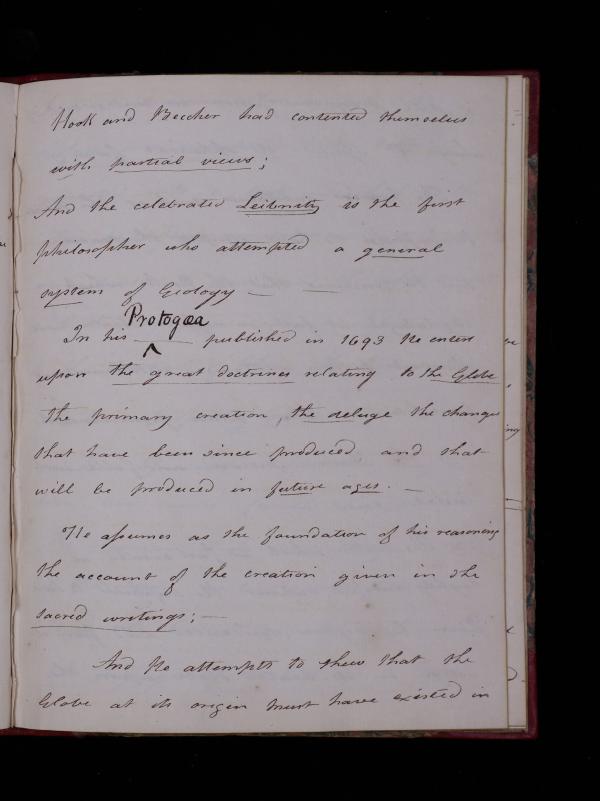 Hook and Beccher had contented themselves
with partial views;
And the celebrated Leibnitz is the first
philosopher who attempted a general
system of Geology — —
Protogæa
In his ^ published in 1693 He enters
upon the great doctrines relating to the Globe
the primary creation, the deluge the changes
that have been since produced and that
will be produced in future ages. —
He assumes as the foundation of his reasoning
the account of the creation given in the
sacred writings; —
And He attempts to shew that the
Globe at its origin must have existed in